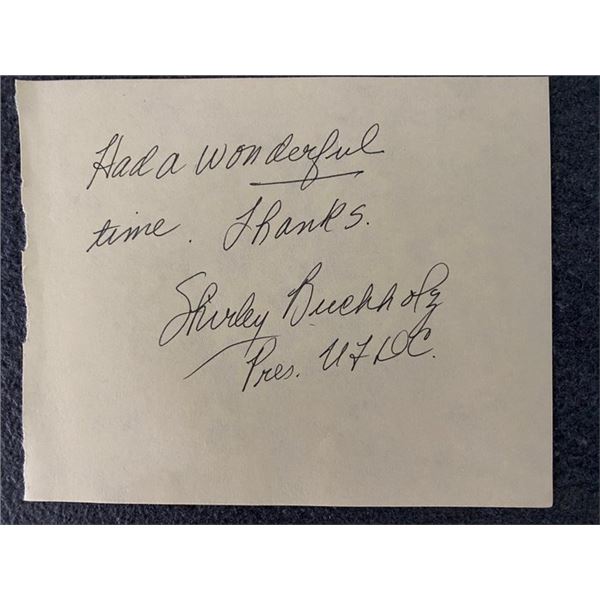 Had a wonderful
time. Thanks.
Shirley Buchholz
Pres. UFDC.